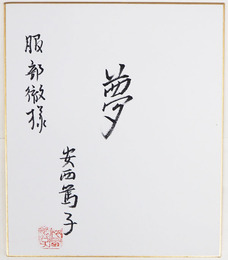 服部徹様
夢
安西篤子